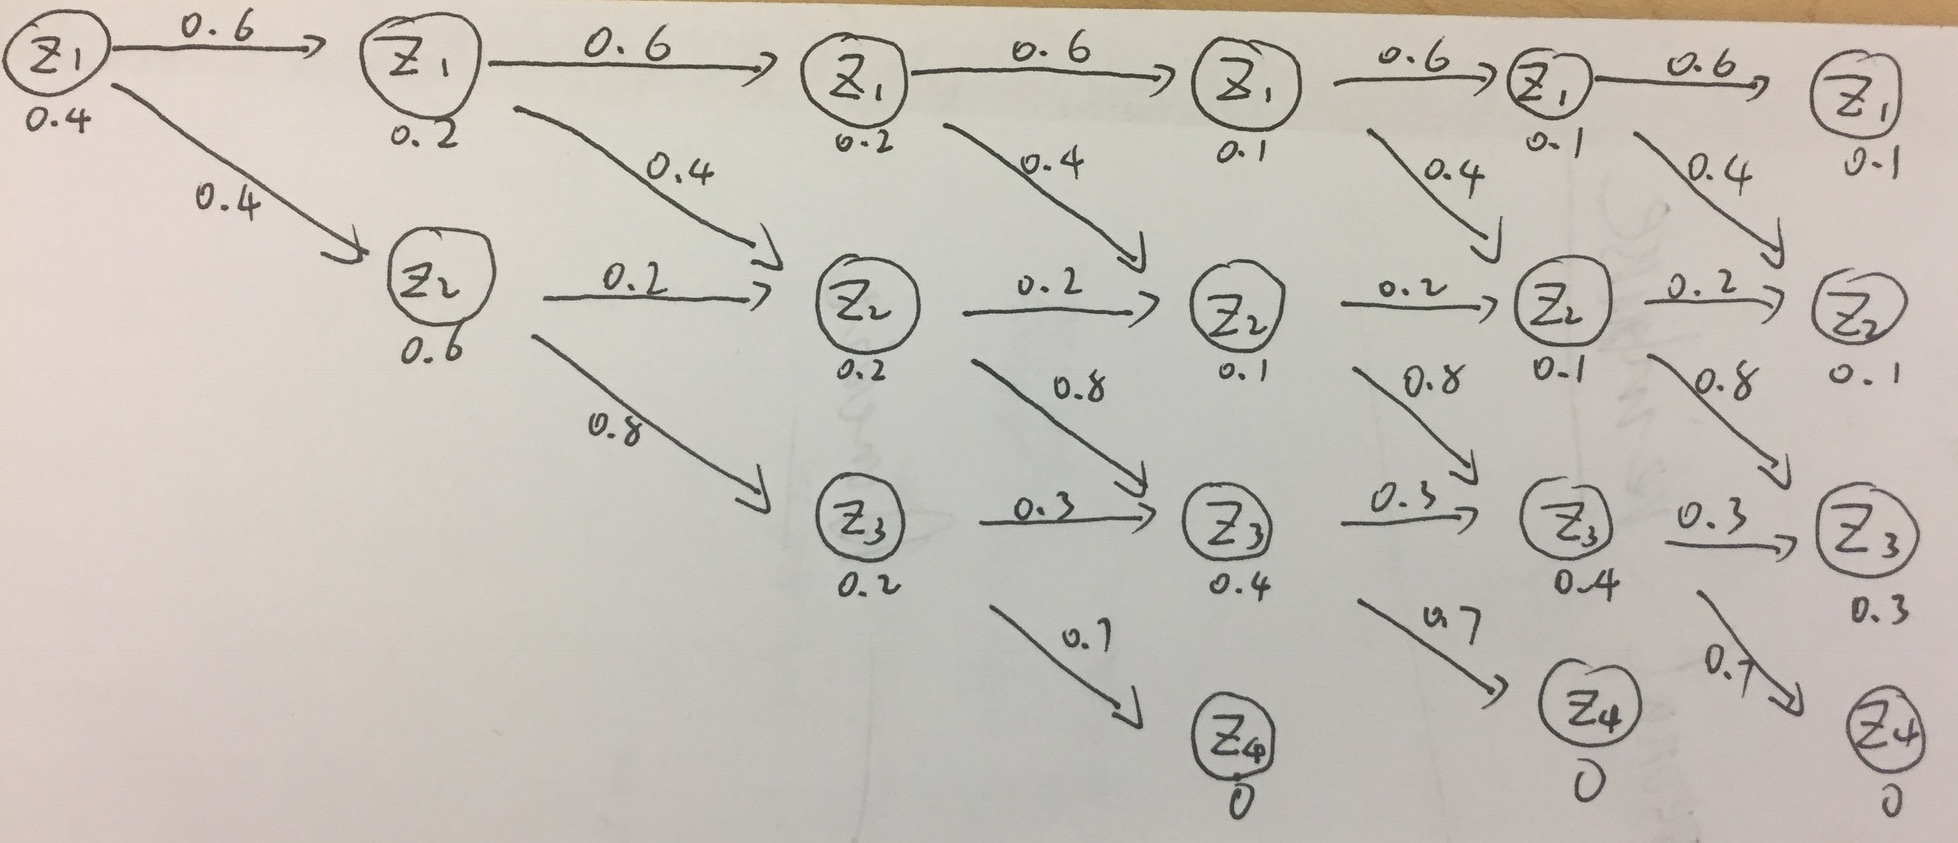 0.6 0.6 0.6 0.6 0.6
Z1 Z1 Z1 Z1 Z1 Z1
0.4 0.2 0.2 0.1 0.1 0.1
0.4 0.4 0.4 0.4 0.4
0.2 0.2 0.2 0.2
Z2 Z2 Z2 Z2 Z2
0.6 0.2 0.1 0.1 0.1
0.8 0.8 0.8 0.8
0.3 0.3 0.3
Z3 Z3 Z3 Z3
0.2 0.4 0.4 0.3
0.7 0.7 0.7
Z4 Z4 Z4
0 0 0